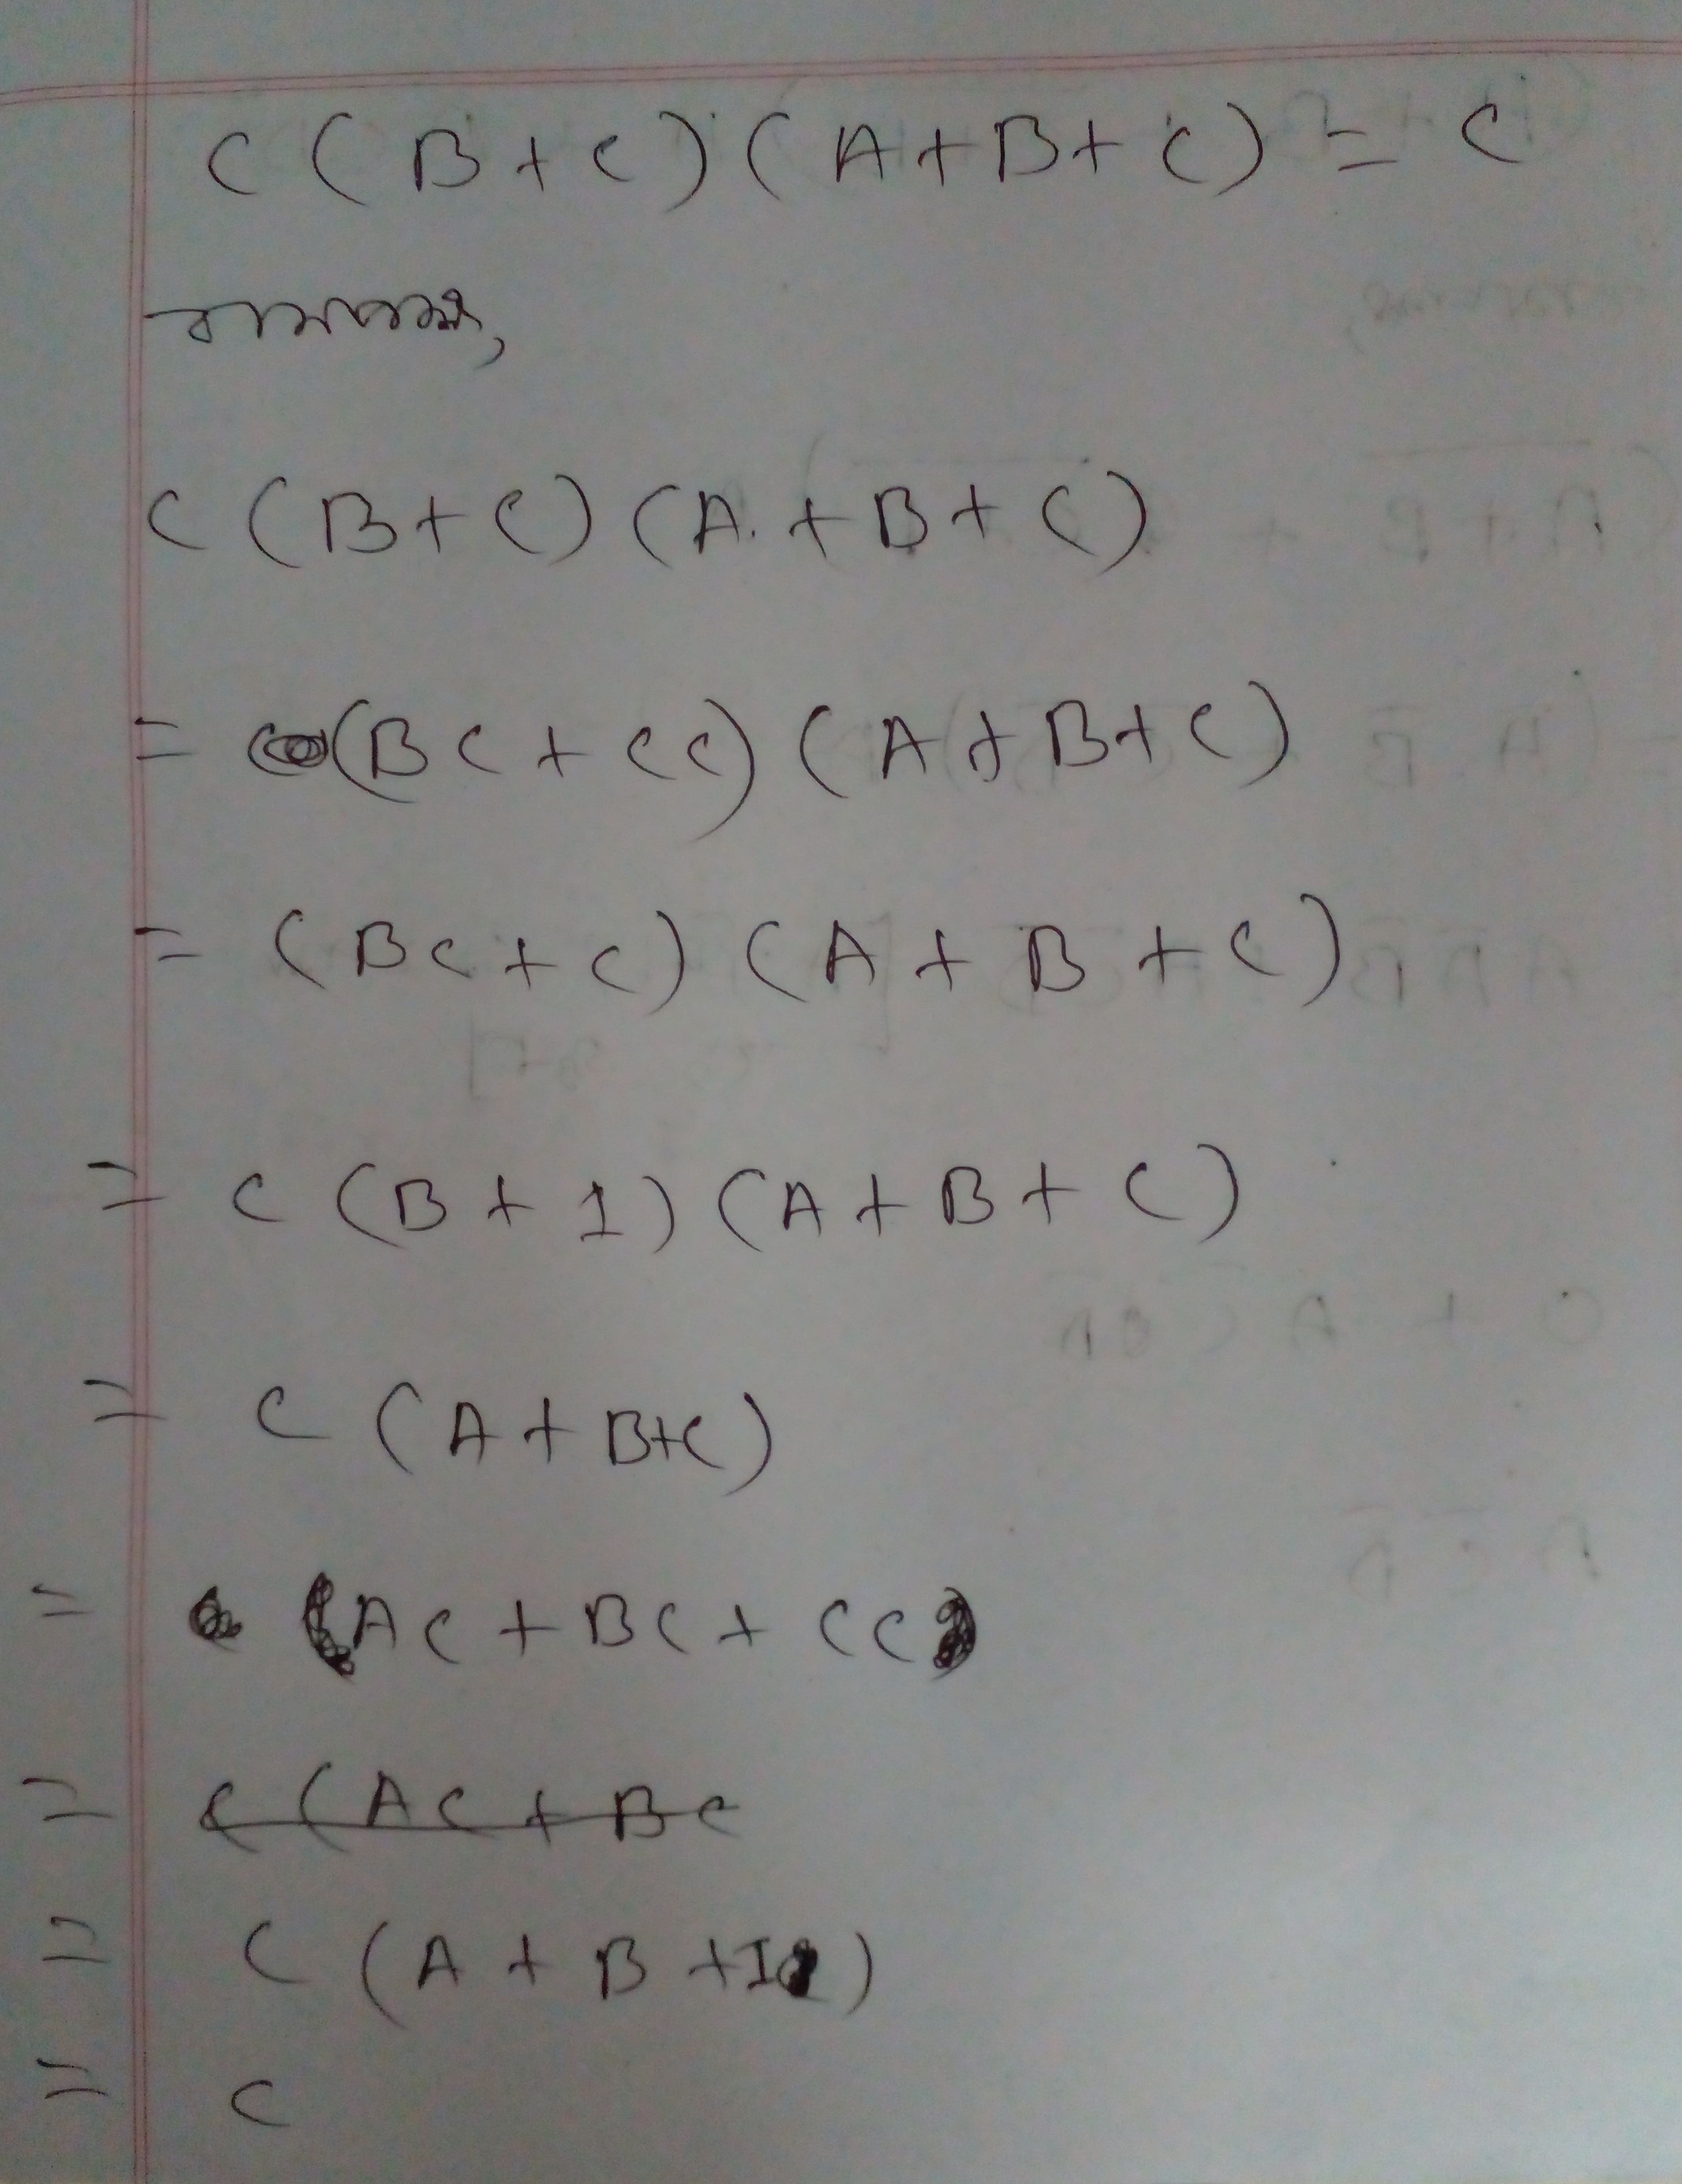 C (B + C) (A + B + C) = C
বামপক্ষ,
C (B + C) (A. + B + C)
= (BC + CC) (A + B + C)
= (BC + C) (A + B + C)
= C (B + 1) (A + B + C)
= C (A + B + C)
= AC + BC + CC
= C (AC + BC
= C (A + B + 1)
= C